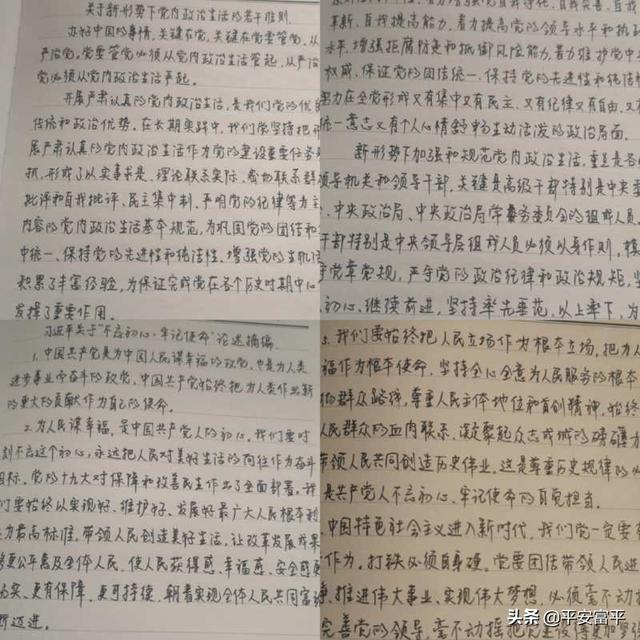 关于新形势下党内政治生活的若干准则
办好中国的事情,关键在党,关键在党要管党、从
严治党。党要管党必须从党内政治生活管起,从严治
党必须从党内政治生活严起。
开展严肃认真的党内政治生活,是我们党的优
传统和政治优势。在长期实践中,我们党坚持把开
展严肃认真的党内政治生活作为党的建设重要任务
抓,形成了以实事求是、理论联系实际、密切联系群
批评和自我批评、民主集中制、严明党的纪律等为主
内容的党内政治生活基本规范,为巩固党的团结和
中统一、保持党的先进性和纯洁性、增强党的生机活
积累了丰富经验,为保证完成党在各个历史时期中心
发挥了重要作用。
革新、自我提高能力,着力提高党的领导水平和执
水平、增强拒腐防变和抵御风险能力,着力维护党中
权威、保证党的团结统一、保持党的先进性和纯洁
努力在全党形成又有集中又有民主、又有纪律又有自由、又
统一意志又有个人心情舒畅生动活泼的政治局面。
新形势下加强和规范党内政治生活,重点是各
领导机关和领导干部,关键是高级干部特别是中央委
、中央政治局、中央政治局常务委员会的组成人员。
干部特别是中央领导层组成人员必须以身作则,模
守党章党规,严守党的政治纪律和政治规矩,坚
初心、继续前进,坚持率先垂范、以上率下,为
习近平关于“不忘初心、牢记使命”论述摘编
1. 中国共产党是为中国人民谋幸福的政党,也是为人类
进步事业而奋斗的政党。中国共产党始终把为人类作出新
的更大的贡献作为自己的使命。
2. 为人民谋幸福,是中国共产党人的初心。我们要时
刻不忘这个初心,永远把人民对美好生活的向往作为奋斗
目标。党的十九大对保障和改善民生作出了全面部署。我
们要始终以实现好、维护好、发展好最广大人民根本利
为最高标准,带领人民创造美好生活,让改革发展成果
更公平惠及全体人民,使人民获得感、幸福感、安全感更
充实、更有保障、更可持续,朝着实现全体人民共同富裕
断迈进。
3. 我们要始终把人民立场作为根本立场,把为人
福作为根本使命,坚持全心全意为人民服务的根本
彻群众路线,尊重人民主体地位和首创精神,始终
人民群众的血肉联系,凝聚起众志成城的磅礴力
带领人民共同创造历史伟业。这是尊重历史规律的必
是共产党人不忘初心、牢记使命的自觉担当。
中国特色社会主义进入新时代,我们党一定要有
作为。打铁必须自身硬。党要团结带领人民进
、推进伟大事业、实现伟大梦想,必须毫不动摇
完善党的领导,毫不动摇把党建设得更加坚强
头条 @平安富平